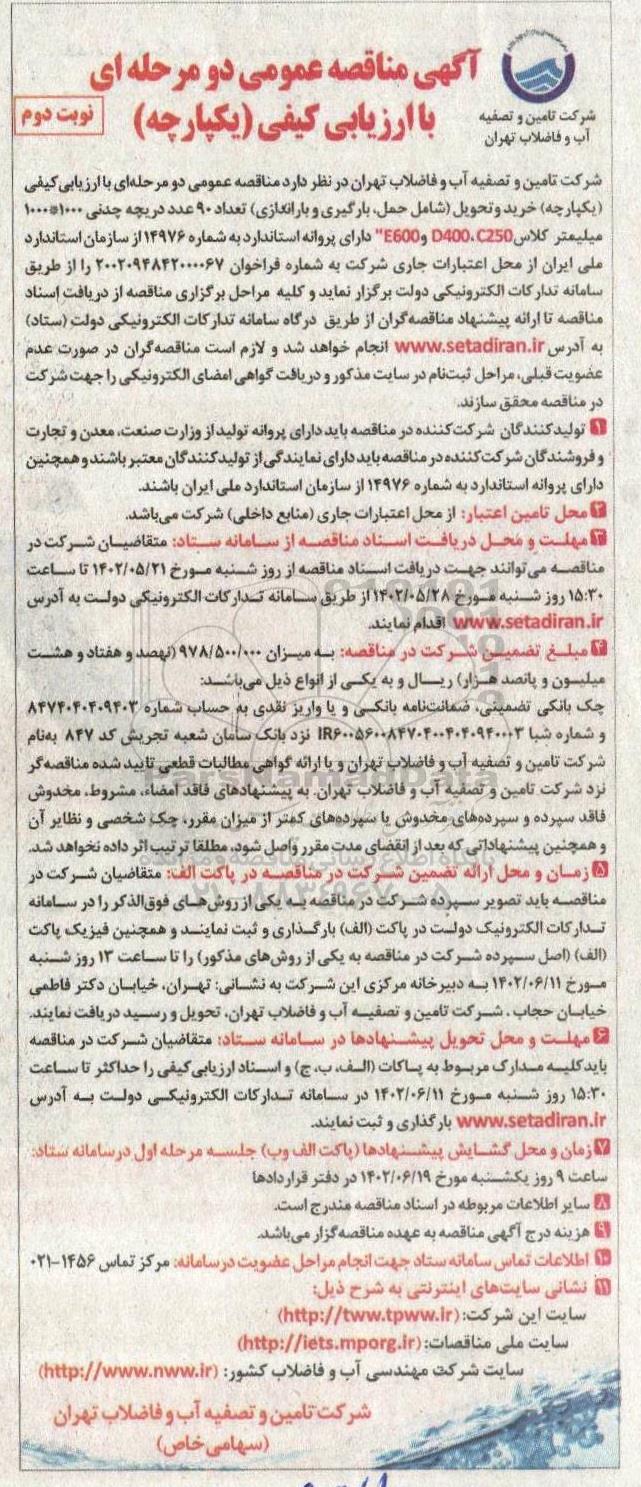 آگهی مناقصه عمومی دو مرحله ای
با ارزیابی کیفی (یکپارچه)
نوبت دوم
شرکت تامین و تصفیه
آب و فاضلاب تهران
شرکت تامین و تصفیه آب و فاضلاب تهران در نظر دارد مناقصه عمومی دو مرحله‌ای با ارزیابی کیفی
(یکپارچه) خرید و تحویل (شامل حمل، بارگیری و باراندازی) تعداد ۹۰ عدد دریچه چدنی ۱۰۰۰*۱۰۰۰
میلیمتر کلاس D400، C250 و E600" دارای پروانه استاندارد به شماره ۱۴۹۷۶ از سازمان استاندارد
ملی ایران از محل اعتبارات جاری شرکت به شماره فراخوان ۲۰۰۲۰۹۴۸۴۲۰۰۰۰۶۷ را از طریق
سامانه تدارکات الکترونیکی دولت برگزار نماید و کلیه مراحل برگزاری مناقصه از دریافت اسناد
مناقصه تا ارائه پیشنهاد مناقصه‌گران از طریق درگاه سامانه تدارکات الکترونیکی دولت (ستاد)
به آدرس www.setadiran.ir انجام خواهد شد و لازم است مناقصه‌گران در صورت عدم
عضویت قبلی، مراحل ثبت‌نام در سایت مذکور و دریافت گواهی امضای الکترونیکی را جهت شرکت
در مناقصه محقق سازند.
۱ تولیدکنندگان شرکت‌کننده در مناقصه باید دارای پروانه تولید از وزارت صنعت، معدن و تجارت
و فروشندگان شرکت‌کننده در مناقصه باید دارای نمایندگی از تولیدکنندگان معتبر باشند و همچنین
دارای پروانه استاندارد به شماره ۱۴۹۷۶ از سازمان استاندارد ملی ایران باشند.
۲ محل تامین اعتبار: از محل اعتبارات جاری (منابع داخلی) شرکت می‌باشد.
۳ مهلت و محل دریافت اسناد مناقصه از سامانه ستاد: متقاضیان شرکت در
مناقصه می‌توانند جهت دریافت اسناد مناقصه از روز شنبه مورخ ۱۴۰۲/۰۵/۲۱ تا ساعت
۱۵:۳۰ روز شنبه مورخ ۱۴۰۲/۰۵/۲۸ از طریق سامانه تدارکات الکترونیکی دولت به آدرس
www.setadiran.ir اقدام نمایند.
۴ مبلغ تضمین شرکت در مناقصه: به میزان ۹۷۸/۵۰۰/۰۰۰ (نهصد و هفتاد و هشت
میلیون و پانصد هزار) ریال و به یکی از انواع ذیل می‌باشد:
چک بانکی تضمینی، ضمانت‌نامه بانکی و یا واریز نقدی به حساب شماره ۸۴۷۴۰۴۰۴۰۹۴۰۳
و شماره شبا IR۶۰۰۵۶۰۰۸۴۷۰۴۰۰۴۰۴۰۹۴۰۰۳ نزد بانک سامان شعبه تجریش کد ۸۴۷ به‌نام
شرکت تامین و تصفیه آب و فاضلاب تهران و یا ارائه گواهی مطالبات قطعی تایید شده مناقصه‌گر
نزد شرکت تامین و تصفیه آب و فاضلاب تهران. به پیشنهادهای فاقد امضاء، مشروط، مخدوش
فاقد سپرده و سپرده‌های مخدوش یا سپرده‌های کمتر از میزان مقرر، چک شخصی و نظایر آن
و همچنین پیشنهاداتی که بعد از انقضای مدت مقرر واصل شود، مطلقا ترتیب اثر داده نخواهد شد.
۵ زمان و محل ارائه تضمین شرکت در مناقصه در پاکت الف: متقاضیان شرکت در
مناقصه باید تصویر سپرده شرکت در مناقصه به یکی از روش‌های فوق‌الذکر را در سامانه
تدارکات الکترونیک دولت در پاکت (الف) بارگذاری و ثبت نمایند و همچنین فیزیک پاکت
(الف) (اصل سپرده شرکت در مناقصه به یکی از روش‌های مذکور) را تا ساعت ۱۳ روز شنبه
مورخ ۱۴۰۲/۰۶/۱۱ به دبیرخانه مرکزی این شرکت به نشانی: تهران، خیابان دکتر فاطمی
خیابان حجاب. شرکت تامین و تصفیه آب و فاضلاب تهران، تحویل و رسید دریافت نمایند.
۶ مهلت و محل تحویل پیشنهادها در سامانه ستاد: متقاضیان شرکت در مناقصه
باید کلیه مدارک مربوط به پاکات (الف، ب، ج) و اسناد ارزیابی کیفی را حداکثر تا ساعت
۱۵:۳۰ روز شنبه مورخ ۱۴۰۲/۰۶/۱۱ در سامانه تدارکات الکترونیکی دولت به آدرس
www.setadiran.ir بارگذاری و ثبت نمایند.
۷ زمان و محل گشایش پیشنهادها (پاکت الف و ب) جلسه مرحله اول در سامانه ستاد:
ساعت ۹ روز یکشنبه مورخ ۱۴۰۲/۰۶/۱۹ در دفتر قراردادها
۸ سایر اطلاعات مربوطه در اسناد مناقصه مندرج است.
۹ هزینه درج آگهی مناقصه به عهده مناقصه‌گزار می‌باشد.
۱۰ اطلاعات تماس سامانه ستاد جهت انجام مراحل عضویت در سامانه: مرکز تماس ۱۴۵۶-۰۲۱
۱۱ نشانی سایت‌های اینترنتی به شرح ذیل:
سایت این شرکت: (http://tww.tpww.ir)
سایت ملی مناقصات: (http://iets.mporg.ir)
سایت شرکت مهندسی آب و فاضلاب کشور: (http://www.nww.ir)
شرکت تامین و تصفیه آب و فاضلاب تهران
(سهامی خاص)